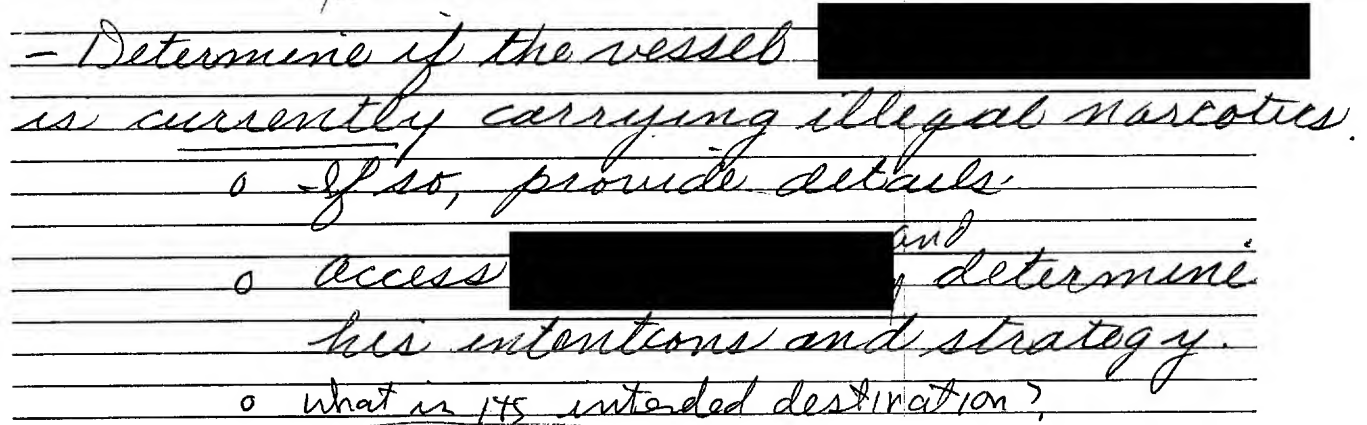 - Determine if the vessel
is currently carrying illegal narcotics.
o If so, provide details.
o access and determine
his intentions and strategy.
o what is its intended destination?